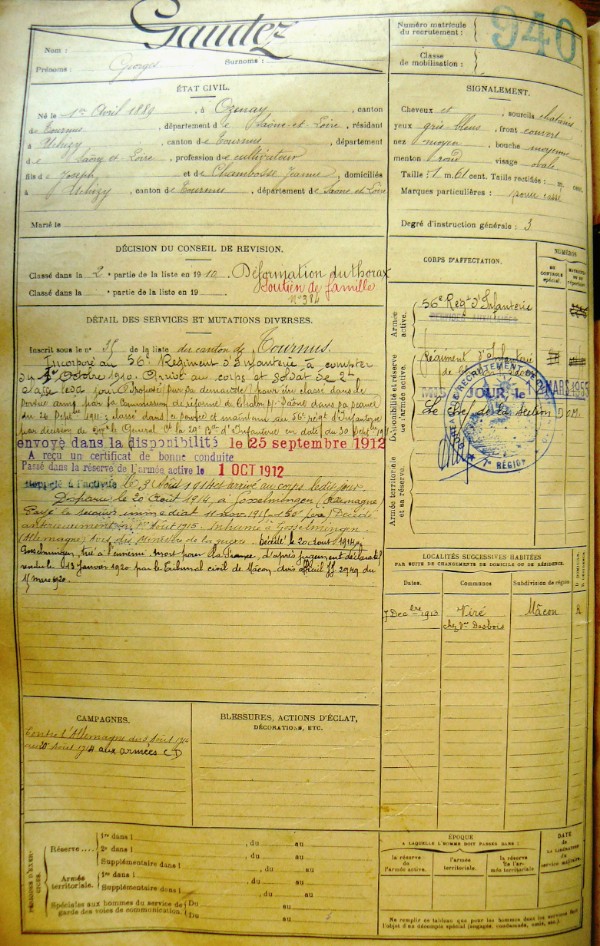 Gaudez
940
Nom :
Prénoms : Georges Surnoms :
Numéro matricule du recrutement :
Classe de mobilisation :
ÉTAT CIVIL.
Né le 1er Avril 1889, à Ozenay, canton
de Tournus, département de Saône-et-Loire, résidant
à Uchizy, canton de Tournus, département
de Saône et Loire, profession de cultivateur
fils de Joseph et de Chambosse Jeanne, domiciliés
à Uchizy, canton de Tournus, département de Saône et Loire
Marié le
SIGNALEMENT.
Cheveux et sourcils chatains
yeux gris bleus, front couvert
nez moyen, bouche moyenne
menton rond, visage ovale
Taille : 1 m. 61 cent. Taille rectifiée : m. cent.
Marques particulières :
Degré d'instruction générale : 3
DÉCISION DU CONSEIL DE REVISION.
Classé dans la 2e partie de la liste en 1910. Déformation du thorax
Soutien de famille
Classé dans la partie de la liste en 19
N° 384
CORPS D'AFFECTATION.
NUMÉROS
Armée active.
56e Régt d'Infanterie
Disponibilité et réserve de l'armée active.
Régiment d'Infanterie
Armée territoriale et sa réserve.
MIS À JOUR le 12 MARS 1955
Le Chef de la section
RECRUTEMENT
7e RÉGION
DÉTAIL DES SERVICES ET MUTATIONS DIVERSES.
Inscrit sous le n° 35 de la liste du canton de Tournus.
Incorporé au 56e Régiment d'Infanterie à compter
du 1er Octobre 1910. Arrivé au corps et soldat de 2e
classe le dit jour. Proposé pour être classé dans le
service armé par la Commission de réforme de Chalon s/ Saône dans sa séance
du 26 Septbre 1911; classé dans et maintenu au 56e régt d'Infanterie
par décision de Mr le Général Ct la d'Infanterie en date du 30 Septbre 1911
envoyé dans la disponibilité le 25 septembre 1912
A reçu un certificat de bonne conduite
Passé dans la réserve de l'armée active le 1 OCT 1912
Rappelé à l'activité le 3 Août 1914 arrivé au corps le dit jour
Disparu le 20 Août 1914, à Gosselmingen (Allemagne)
Payé le secours immédiat 150f
antérieurement au 1er Août 1915. Inhumé à Gosselmingen
(Allemagne) Avis du Ministère de la guerre. Décédé le 20 août 1914 à
Gosselmingen, tué à l'ennemi mort pour la France, d'après jugement déclaratif
rendu le 13 Janvier 1920 par le Tribunal civil de Mâcon, avis officiel 2949 du
mars 1920.
LOCALITÉS SUCCESSIVES HABITÉES
PAR SUITE DE CHANGEMENTS DE DOMICILE OU DE RÉSIDENCE.
Dates. Commune Subdivision de région
7 Decbre 1913 Viré Mâcon R
chez Mr Desbois
CAMPAGNES.
Contre l'Allemagne du 3 Août 1914
au 20 Août 1914 aux armées CD
BLESSURES, ACTIONS D'ÉCLAT,
DÉCORATIONS, ETC.
PÉRIODES D'EXERCICES.
Réserve
1re dans l , du au
2e dans l , du au
Supplémentaire dans l , du au
Armée territoriale.
1re dans l , du au
Supplémentaire dans l , du au
Spéciales aux hommes du service de garde des voies de communication.
Du au
Du au
ÉPOQUE
A LAQUELLE L'HOMME DOIT PASSER DANS :
la réserve de l'armée active.
l'armée territoriale.
la réserve de l'armée territoriale
DATE
de LA LIBÉRATION du service militaire.
Ne remplir ce tableau que pour les hommes dont les services font l'objet d'un décompte spécial (engagés, condamnés, omis, etc.)